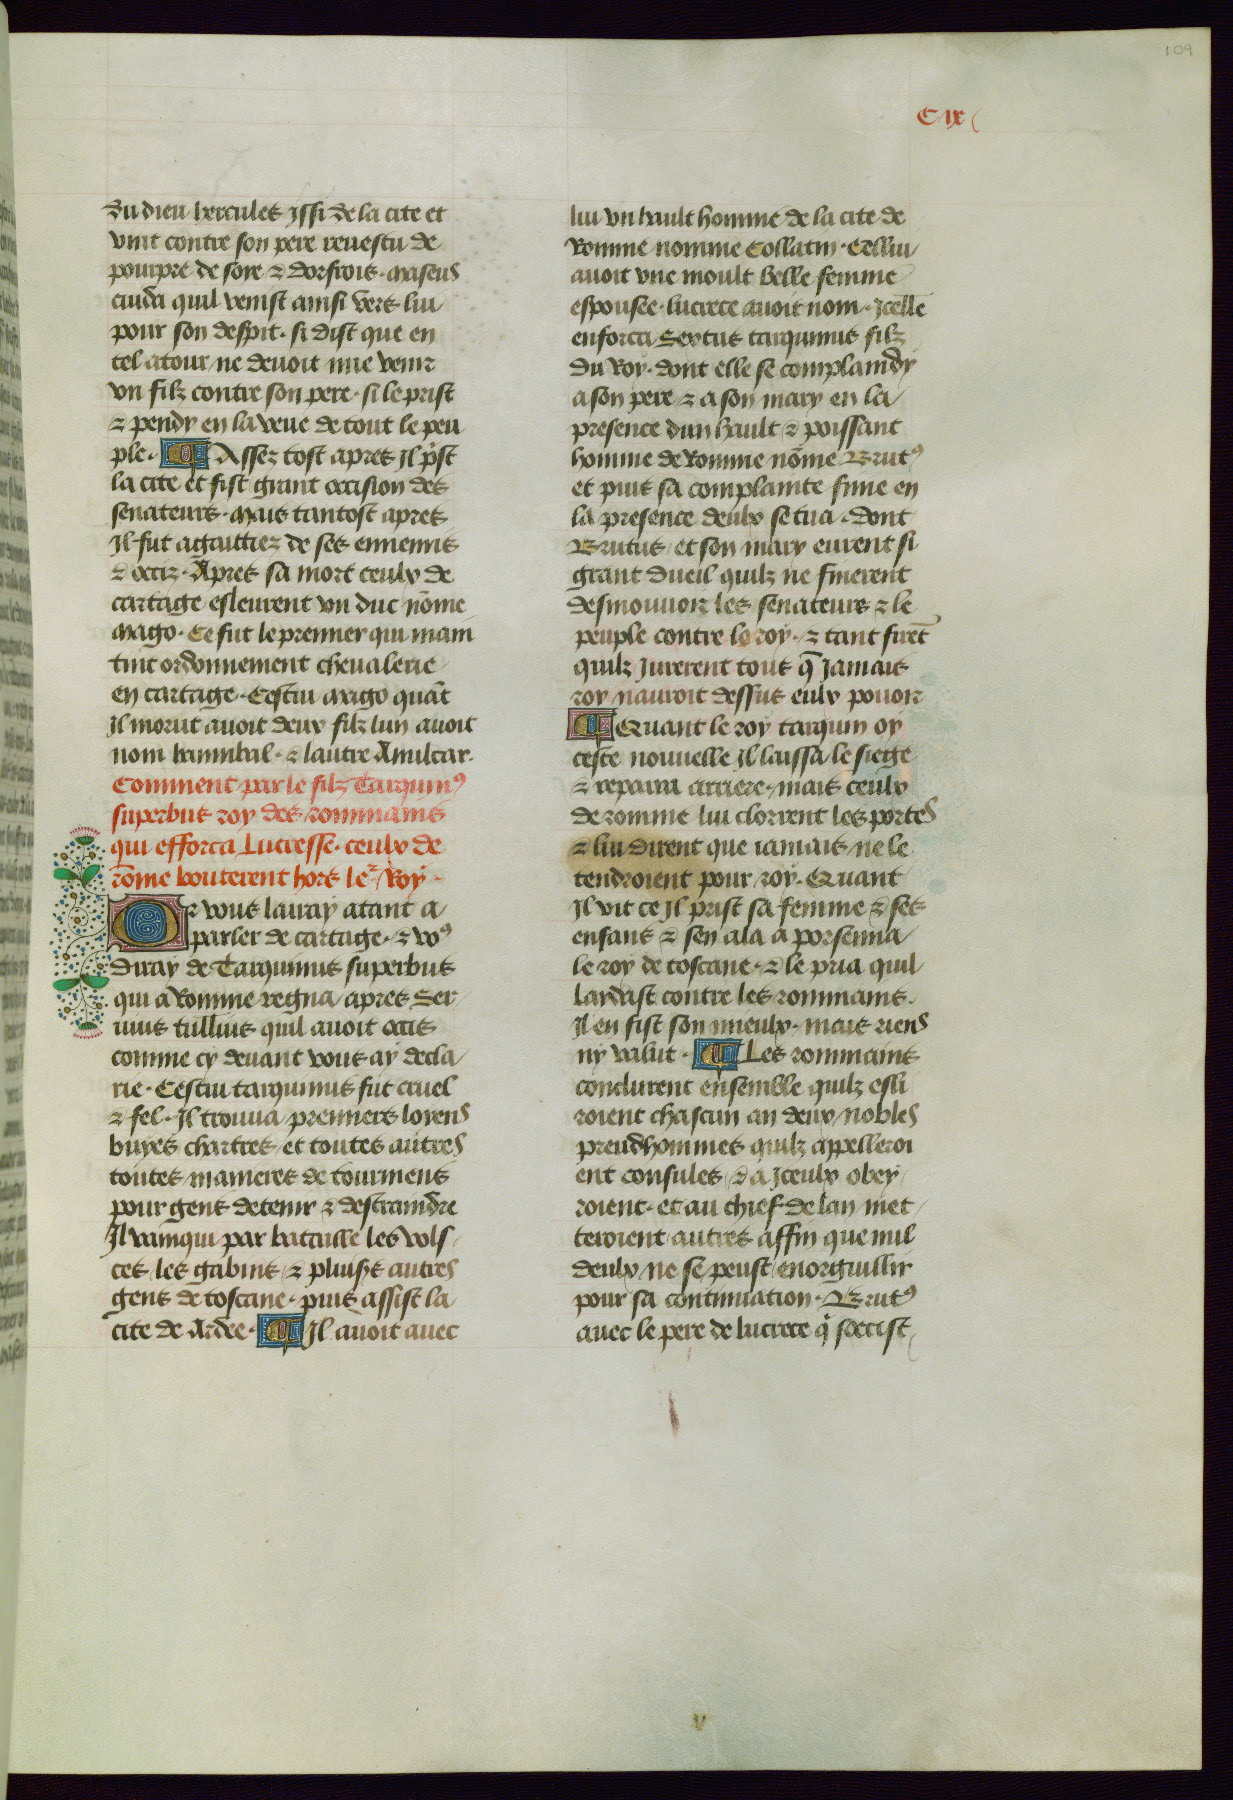 109
C ix
du dieu hercules yssi de la cite et
vint contre son pere reuestu de
pourpre de soye ⁊ dorfrois. maseus
cuida quil venist ainsi vers lui
pour son despit. si dist que en
tel atour ne deuoit mie venir
vn filz contre son pere. si le prist
⁊ pendy en la veue de tout le peu
ple. ¶ Assez tost apres Il p̾st
la cite et fist grant occision des
senateurs. Mais tantost apres
Il fut agaittiez de ses ennemis
⁊ occiz. Apres sa mort ceulx de
cartage esleurent vn duc nōme
Mago. Ce fut le premier qui main
tint ordonneement cheualerie
en cartage. Cestui Mago quāt
Il morut auoit deux filz lun auoit
nom hannibal. ⁊ lautre Amilcar.
Comment par le filz Tarquinꝰ
superbus roy des rommains
qui efforca Lucresse. ceulx de
rōme bouterent hors le Roy
Or vous lairay atant a
parler de cartage. ⁊ voꝰ
diray de Tarquinus superbus
qui a Romme regna apres Ser
uius tullius quil auoit occis
comme cy deuant vous ay decla
rie. Cestui tarquinus fut cruel
⁊ fel. Il trouua premiers loyens
buyes chartres et toutes autres
toutes manieres de tourmens
pour gens detenir ⁊ destraindre
Il vainqui par bataille les vols
ces les gabins ⁊ pluis̾s autres
gens de toscane. puis assist la
cite de Ardee. ¶ Il auoit auec
lui vn hault homme de la cite de
Romme nomme Collatin. Cellui
auoit vne moult belle femme
espousee. lucrece auoit nom. Icelle
enforca Sextus tarquinius filz
du Roy. dont elle se complaindy
a son pere ⁊ a son mary en la
presence dun hault ⁊ poissant
homme de Romme nōme Brutꝰ
et puis sa complainte finie en
la presence deulx se tua. dont
Brutus et son mary eurent si
grant dueil quilz ne finerent
desmouuoir les senateurs ⁊ le
peuple contre le roy. ⁊ tant firēt
quilz Jurerent tous q̄ Jamais
roy nauroit dessus eulx pouoir
¶ Quant le roy tarquin oy
ceste nouuelle Il laissa le siege
⁊ repaira arriere. mais ceulx
de romme lui clorrent les portes
⁊ lui dirent que iamais ne le
tendroient pour roy. Quant
Il vit ce Il prist sa femme ⁊ ses
enfans ⁊ sen ala a porsenna
le roy de toscane. ⁊ le pria quil
laydast contre les rommains.
Il en fist son mieulx. mais riens
ny valut. ¶ Les rommains
conclurent ensemble quilz esli
roient chascun an deux nobles
preudhommes quilz apelleroi
ent consules ⁊ a Iceulx obey
roient. et au chief de lan met
teroient autres affin que nul
deulx ne se peust enorguillir
pour sa continuation. Brutꝰ
auec le pere de lucrece q̾ soccist